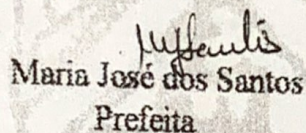 Maria José dos Santos
Prefeita